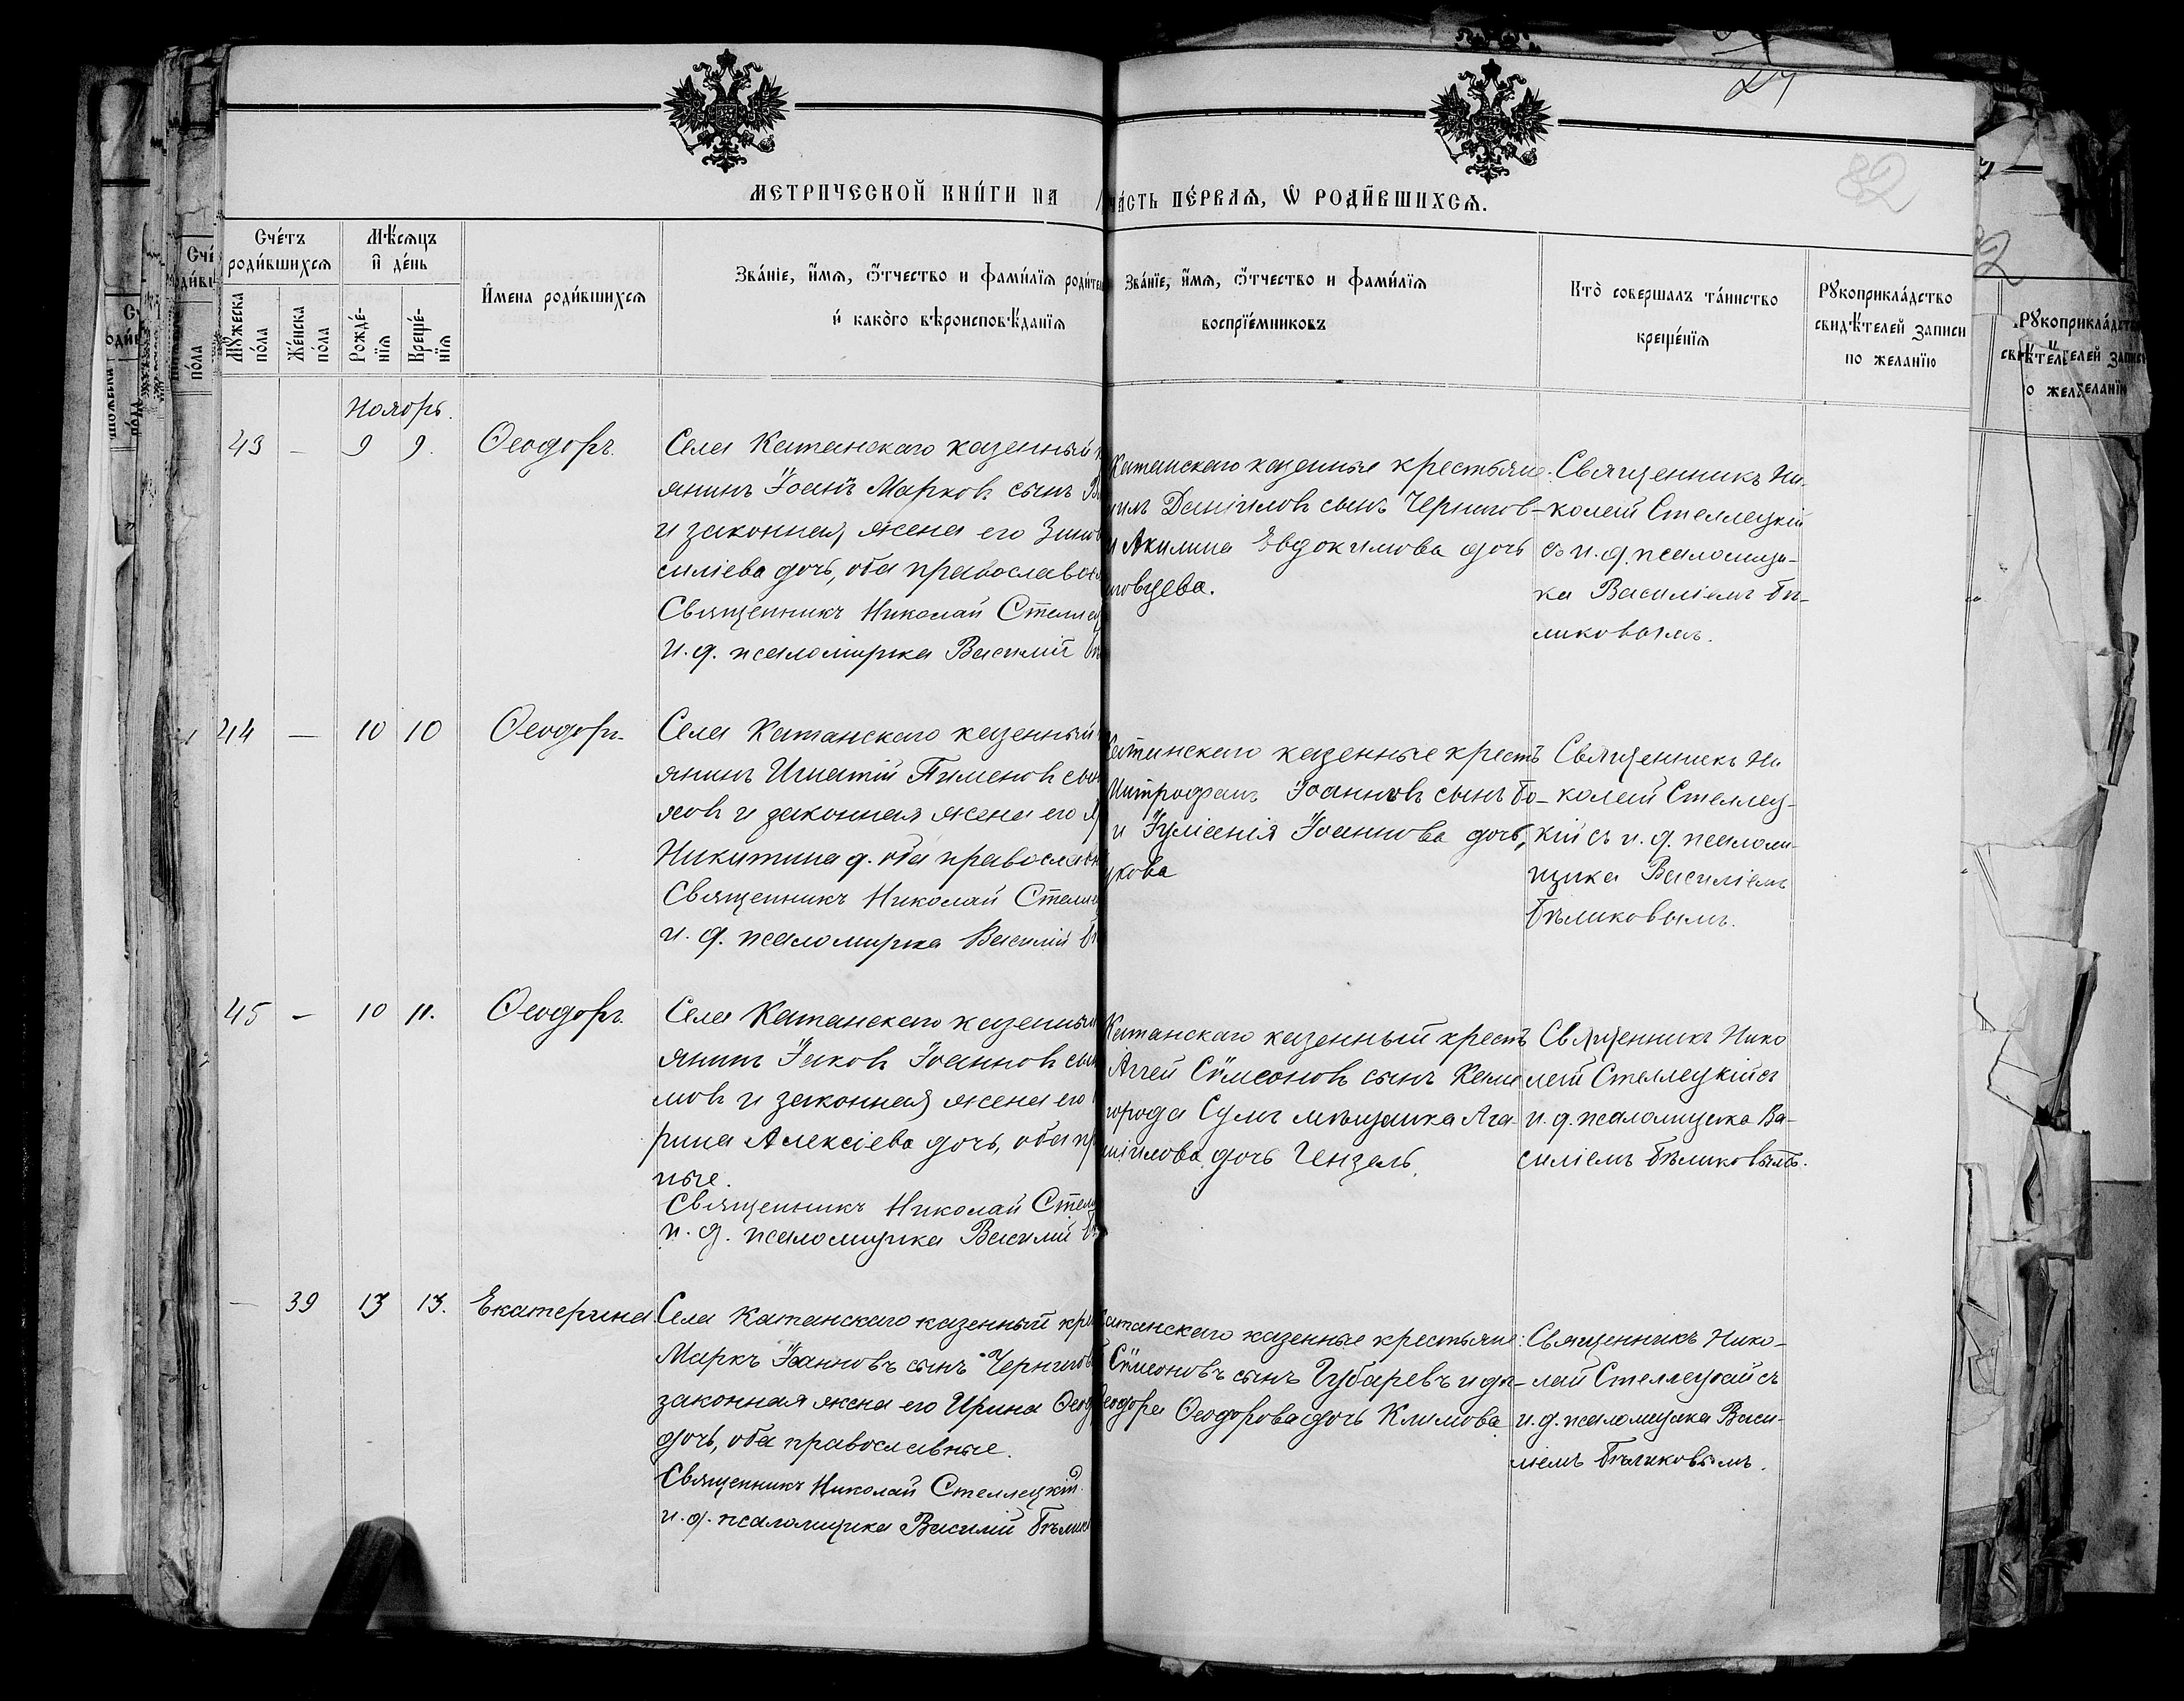 27
82
МЕТРИЧЕСКОЙ КНИ́ГИ НА
ЧА́СТЬ ПЕ́РВАѦ, Ѡ҆ РОДИ́ВШИХСѦ.
Сче́тъ роди́вшихсѧ
Мѣ́сѧцъ и҆ де́нь
Мꙋ́жеска по́ла
Же́нска по́ла
Рожде́-нїѧ
Креще́-нїѧ
И҆мена роди́вшихсѧ
Зва́нїе, и҆́мѧ, ѻ҆́тчество и фами́лїѧ роди́тел
и҆ како́го вѣроисповѣ́данїѧ
Зва́нїе, и҆́мѧ, ѻ҆́тчество и фами́лїѧ
воспрїе́мниковъ
Кто̀ соверша́лъ та́инство
креще́нїѧ
Рꙋкоприкла́дство
свидѣ́телей записи
по жела́нїю
Ноябрь.
43 — 9 9. Ѳеодоръ.
Села Катанскаго казенный
янинъ Іоаннъ Марковъ сынъ
и законная жена его Зинов
силіева дочь, оба православн
Священникъ Николай Стеллец
И. д. псаломщика Василій
Катанскаго казенные крестьяне:
Даніиловъ сынъ Чернигов-
и Акилина Евдокимова дочь
говцева.
Священникъ Ни-
колай Стеллецкій
съ и. д. псаломщи-
ка Василіемъ Бѣ-
ликовымъ.
44 — 10 10 Ѳеодоръ.
Села Катанскаго казенный
янинъ Игнатій Пименовъ сын
ковъ и законная жена его
Никитина д. оба православн
Священникъ Николай Стелле
и. д. псаломщика Василій
Катанскаго казенные крестъ
Митрофанъ Іоанновъ сынъ Бо-
и Іуліанія Іоаннова дочь,
кова
Священникъ Ни
колай Стеллец-
кій съ и. д. псалом-
щика Василіемъ
Бѣликовымъ.
45 — 10 11. Ѳеодоръ.
Села Катанскаго казенный
янинъ Іаковъ Іоанновъ сын
мовъ и законная жена его
рина Алексіева дочь, оба пр
ные.
Священникъ Николай Стелл
и. д. псаломщика Василій
Катанскаго казенный крестъ
Аггей Сѵмеоновъ сынъ
города Сумъ мѣщанка Ага-
ніилова дочь Гензель.
Священникъ Нико
лай Стеллецкій съ
и. д. псаломщика Ва-
силіемъ Бѣликовымъ.
— 39 13 13. Екатерина
Села Катанскаго казенный кре
Маркъ Іоанновъ сынъ Чернигов
законная жена его Ирина Ѳеод
дочь, оба православные.
Священникъ Николай Стеллецкій
и. д. псаломщика Василій Бѣлик
Катанскаго казенные крестьяне:
Сѵмеоновъ сынъ Губаревъ и дѣ-
Ѳеодора Ѳеодорова дочь Климова.
Священникъ Нико-
лай Стеллецкій съ
и. д. псаломщика Васи-
ліемъ Бѣликовымъ.